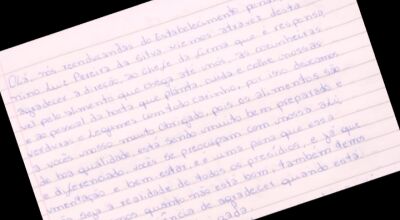 Olá, nós reeducandas do Estabelecimento penal
Luiz Pereira da Silva viemos através desta
agradecer a direção, ao chefe da firma que é responsa
vel pelo alimento que chega até nós, as cozinheiras
e ao pessoal da horta que planta, cuida e colhe nossas
verduras e legumes com tudo carinho, por isso deixamos
a vocês nosso muito obrigado, pois os alimentos são
de boa qualidade, está sendo muito bem preparado e
é diferenciado, vocês se preocupam com nossa ali
mentação e bem estar, e é uma pena que essa
seja a realidade de todos os presídios, e já que
quando não está bom, também temo
de agradecer quando está